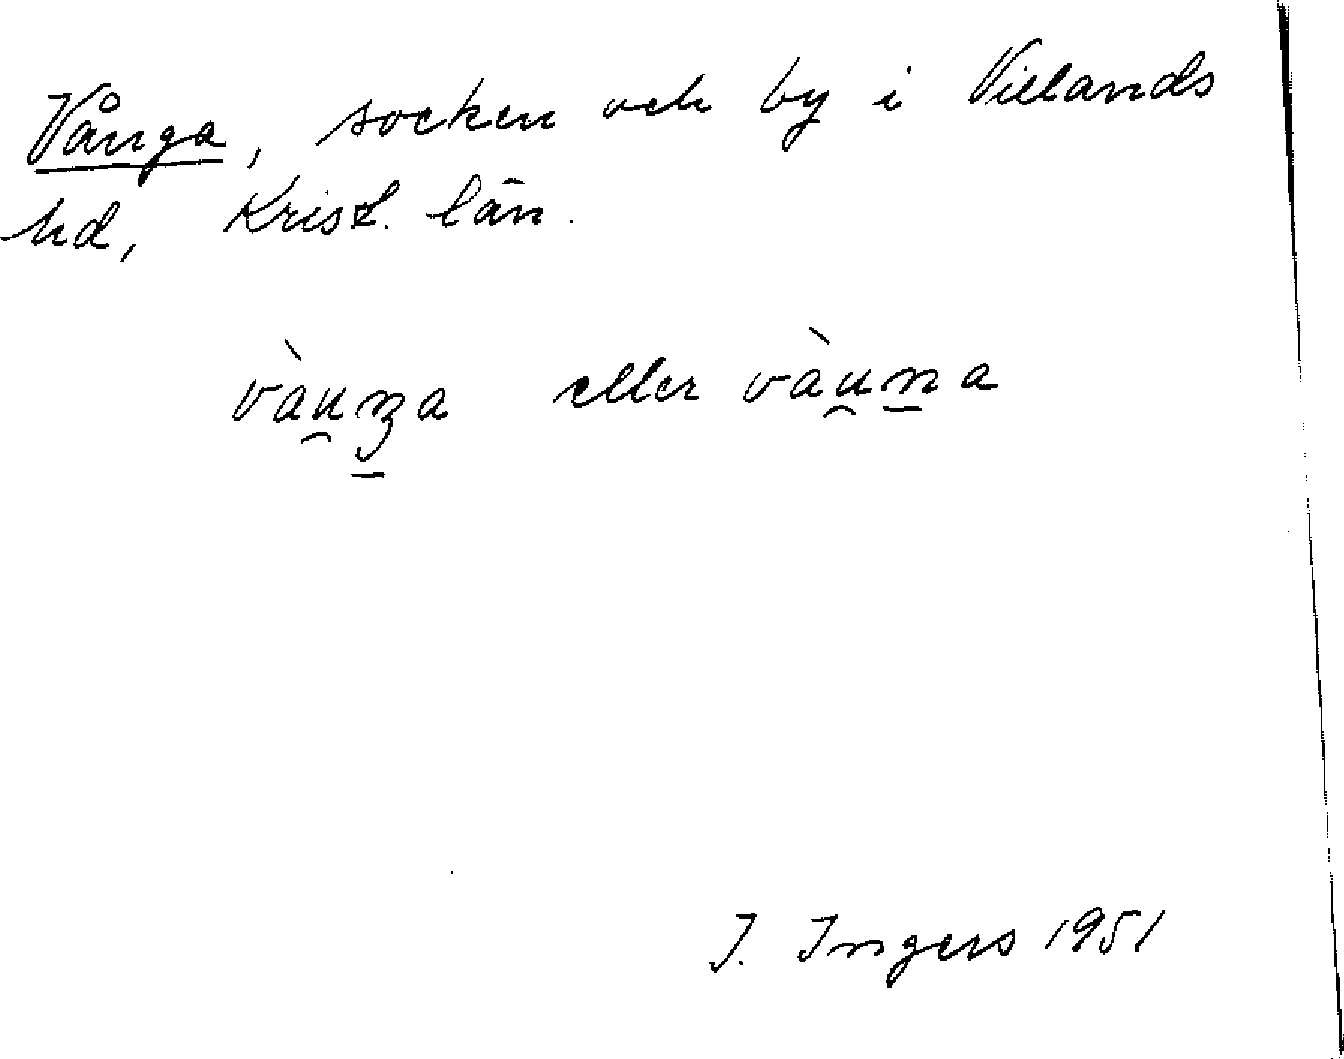 Vånga, socken och by i Villands
hd, Krist. län.
vàu̯ŋ̠a eller vàu̯n̠a
I. Ingers 1951